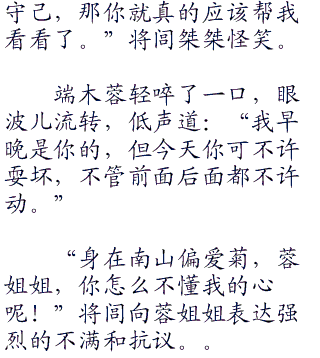 守己，那你就真的应该帮我
看看了。”将闾桀桀怪笑。
端木蓉轻啐了一口，眼
波儿流转，低声道：“我早
晚是你的，但今天你可不许
耍坏，不管前面后面都不许
动。”
“身在南山偏爱菊，蓉
姐姐，你怎么不懂我的心
呢！”将闾向蓉姐姐表达强
烈的不满和抗议。。